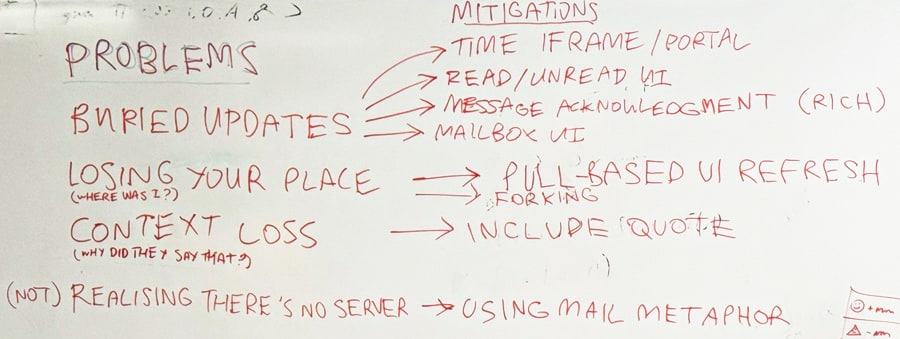 MITIGATIONS
PROBLEMS
TIME IFRAME/PORTAL
READ/UNREAD UI
MESSAGE ACKNOWLEDGMENT (RICH)
BURIED UPDATES
MAILBOX UI
LOSING YOUR PLACE
PULL-BASED UI REFRESH
(WHERE WAS I?)
FORKING
CONTEXT LOSS
INCLUDE QUOTE
(WHY DID THEY SAY THAT?)
(NOT) REALISING THERE'S NO SERVER → USING MAIL METAPHOR